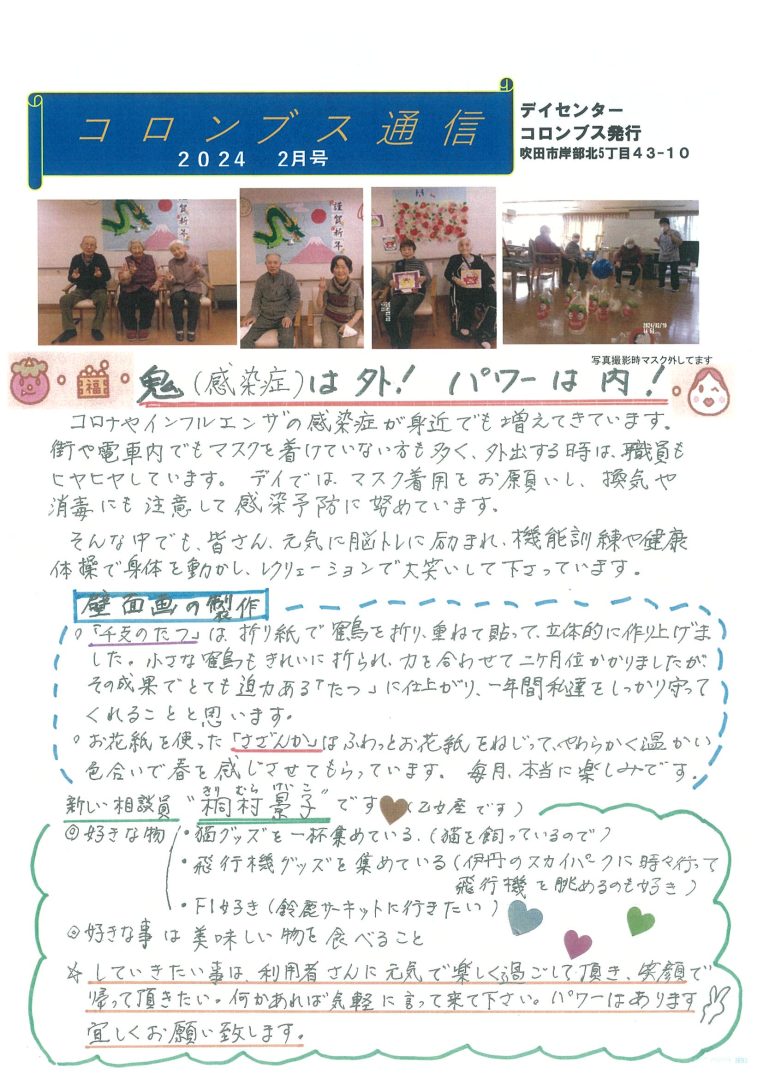 コロンブス通信
2024 2月号
デイセンター
コロンブス発行
吹田市岸部北5丁目43-10
謹賀新年
謹賀新年
写真撮影時マスク外してます
福
鬼(感染症)は外! パワーは内!
コロナやインフルエンザの感染症が身近でも増えてきています。
街や電車内でもマスクを着けていない方も多く、外出する時は、職員も
ヒヤヒヤしています。デイでは、マスク着用をお願いし、換気や
消毒にも注意して感染予防に努めています。
そんな中でも、皆さん、元気に脳トレに励まれ、機能訓練や健康
体操で身体を動かし、レクリェーションで大笑いして下さっています。
壁面画の製作
○「干支のたつ」は、折り紙で鶴を折り、重ねて貼って、立体的に作り上げま
した。小さな鶴もきれいに折られ、力を合わせて二ヶ月位かかりましたが、
その成果でとても迫力ある「たつ」に仕上がり、一年間私達をしっかり守って
くれることと思います。
○お花紙を使った「さざんか」はふわっとお花紙をねじって、やわらかく温かい
色合いで春を感じさせてもらっています。毎月、本当に楽しみです。
新しい相談員 "桐村景子"です (乙女座です)
きり むら けい こ
◎好きな物 ・猫グッズを一杯集めている.(猫を飼っているので)
・飛行機グッズを集めている(伊丹のスカイパークに時々行って
飛行機を眺めるのも好き)
・F1好き(鈴鹿サーキットに行きたい)
◎好きな事は美味しい物を食べること
☆していきたい事は、利用者さんに元気で楽しく過ごして頂き、笑顔で
帰って頂きたい。何かあれば気軽に言って来て下さい。パワーはあります
宜しくお願い致します。